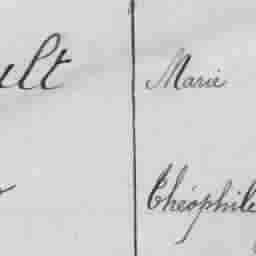 ult Marie
Théophile